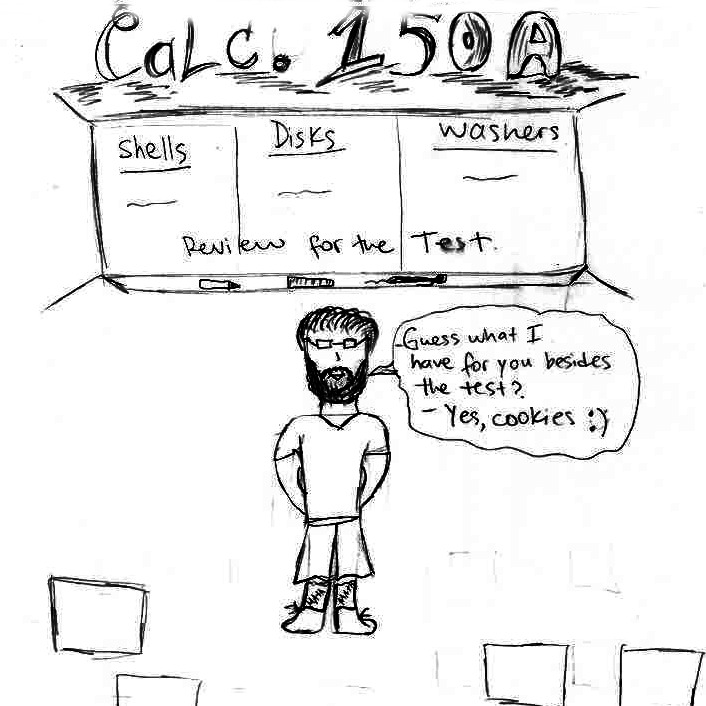 CaLc. 150A
Shells
Disks
Washers
Review for the Test.
Guess what I
have for you besides
the test?
- Yes, cookies :)